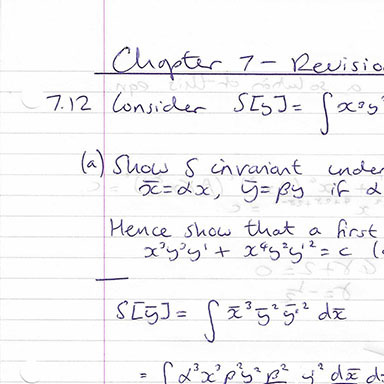 Chapter 7 - Revision
7.12 Consider S[y] = ∫ x³y²
(a) Show S invariant under
x̄ = αx, ȳ = βy if α
Hence show that a first
x³y³y' + x⁴y²y'² = c
S[ȳ] = ∫ x̄³ ȳ² ȳ'² dx̄
= ∫ α³x³β²y²β² y'² dx̄